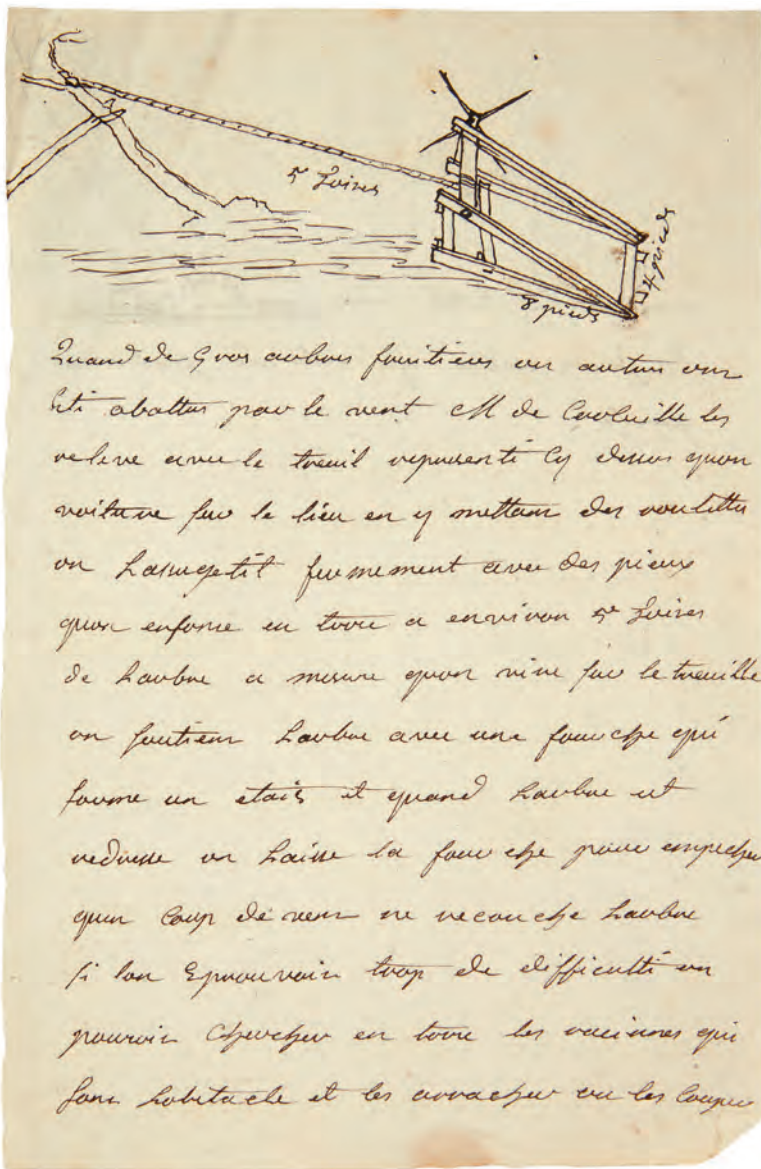 5 Toises
4 pieds
8 pieds
Quand de Gros arbres fruitiers ou autres ont
été abattus par le vent M de les
releve avec le treuil representé Cy dessus quon
voiture sur le lieu en y mettant des roulettes
on Lassugetit fermement avec des pieux
quon enfonse en terre a environ 5 Toises
de Larbre a mesure quon vire sur le treuille
on soutient Larbre avec une fourche qui
forme un etais et quand Larbre est
redresse on Laisse la fourche pour empecher
quun Coup de vent ne recouche Larbre
si lon Eprouvoit trop de difficulté on
pouroit Chercher en terre les racinnes qui
font Lobstacle et les arracher ou les Couper